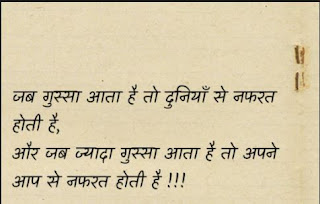 जब गुस्सा आता है तो दुनियाँ से नफरत
होती है,
और जब ज्यादा गुस्सा आता है तो अपने
आप से नफरत होती है !!!